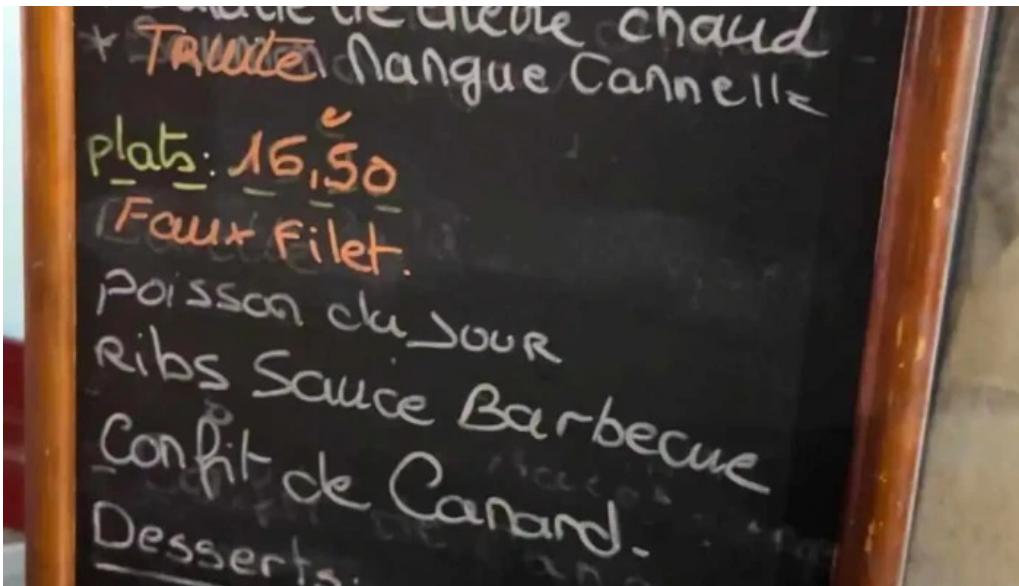 Salade de chèvre chaud
* TRUITE Mangue Cannelle
plats: 16,50 €
Faux Filet.
poisson du JOUR
Ribs Sauce Barbecue
Confit de Canard.
Desserts: